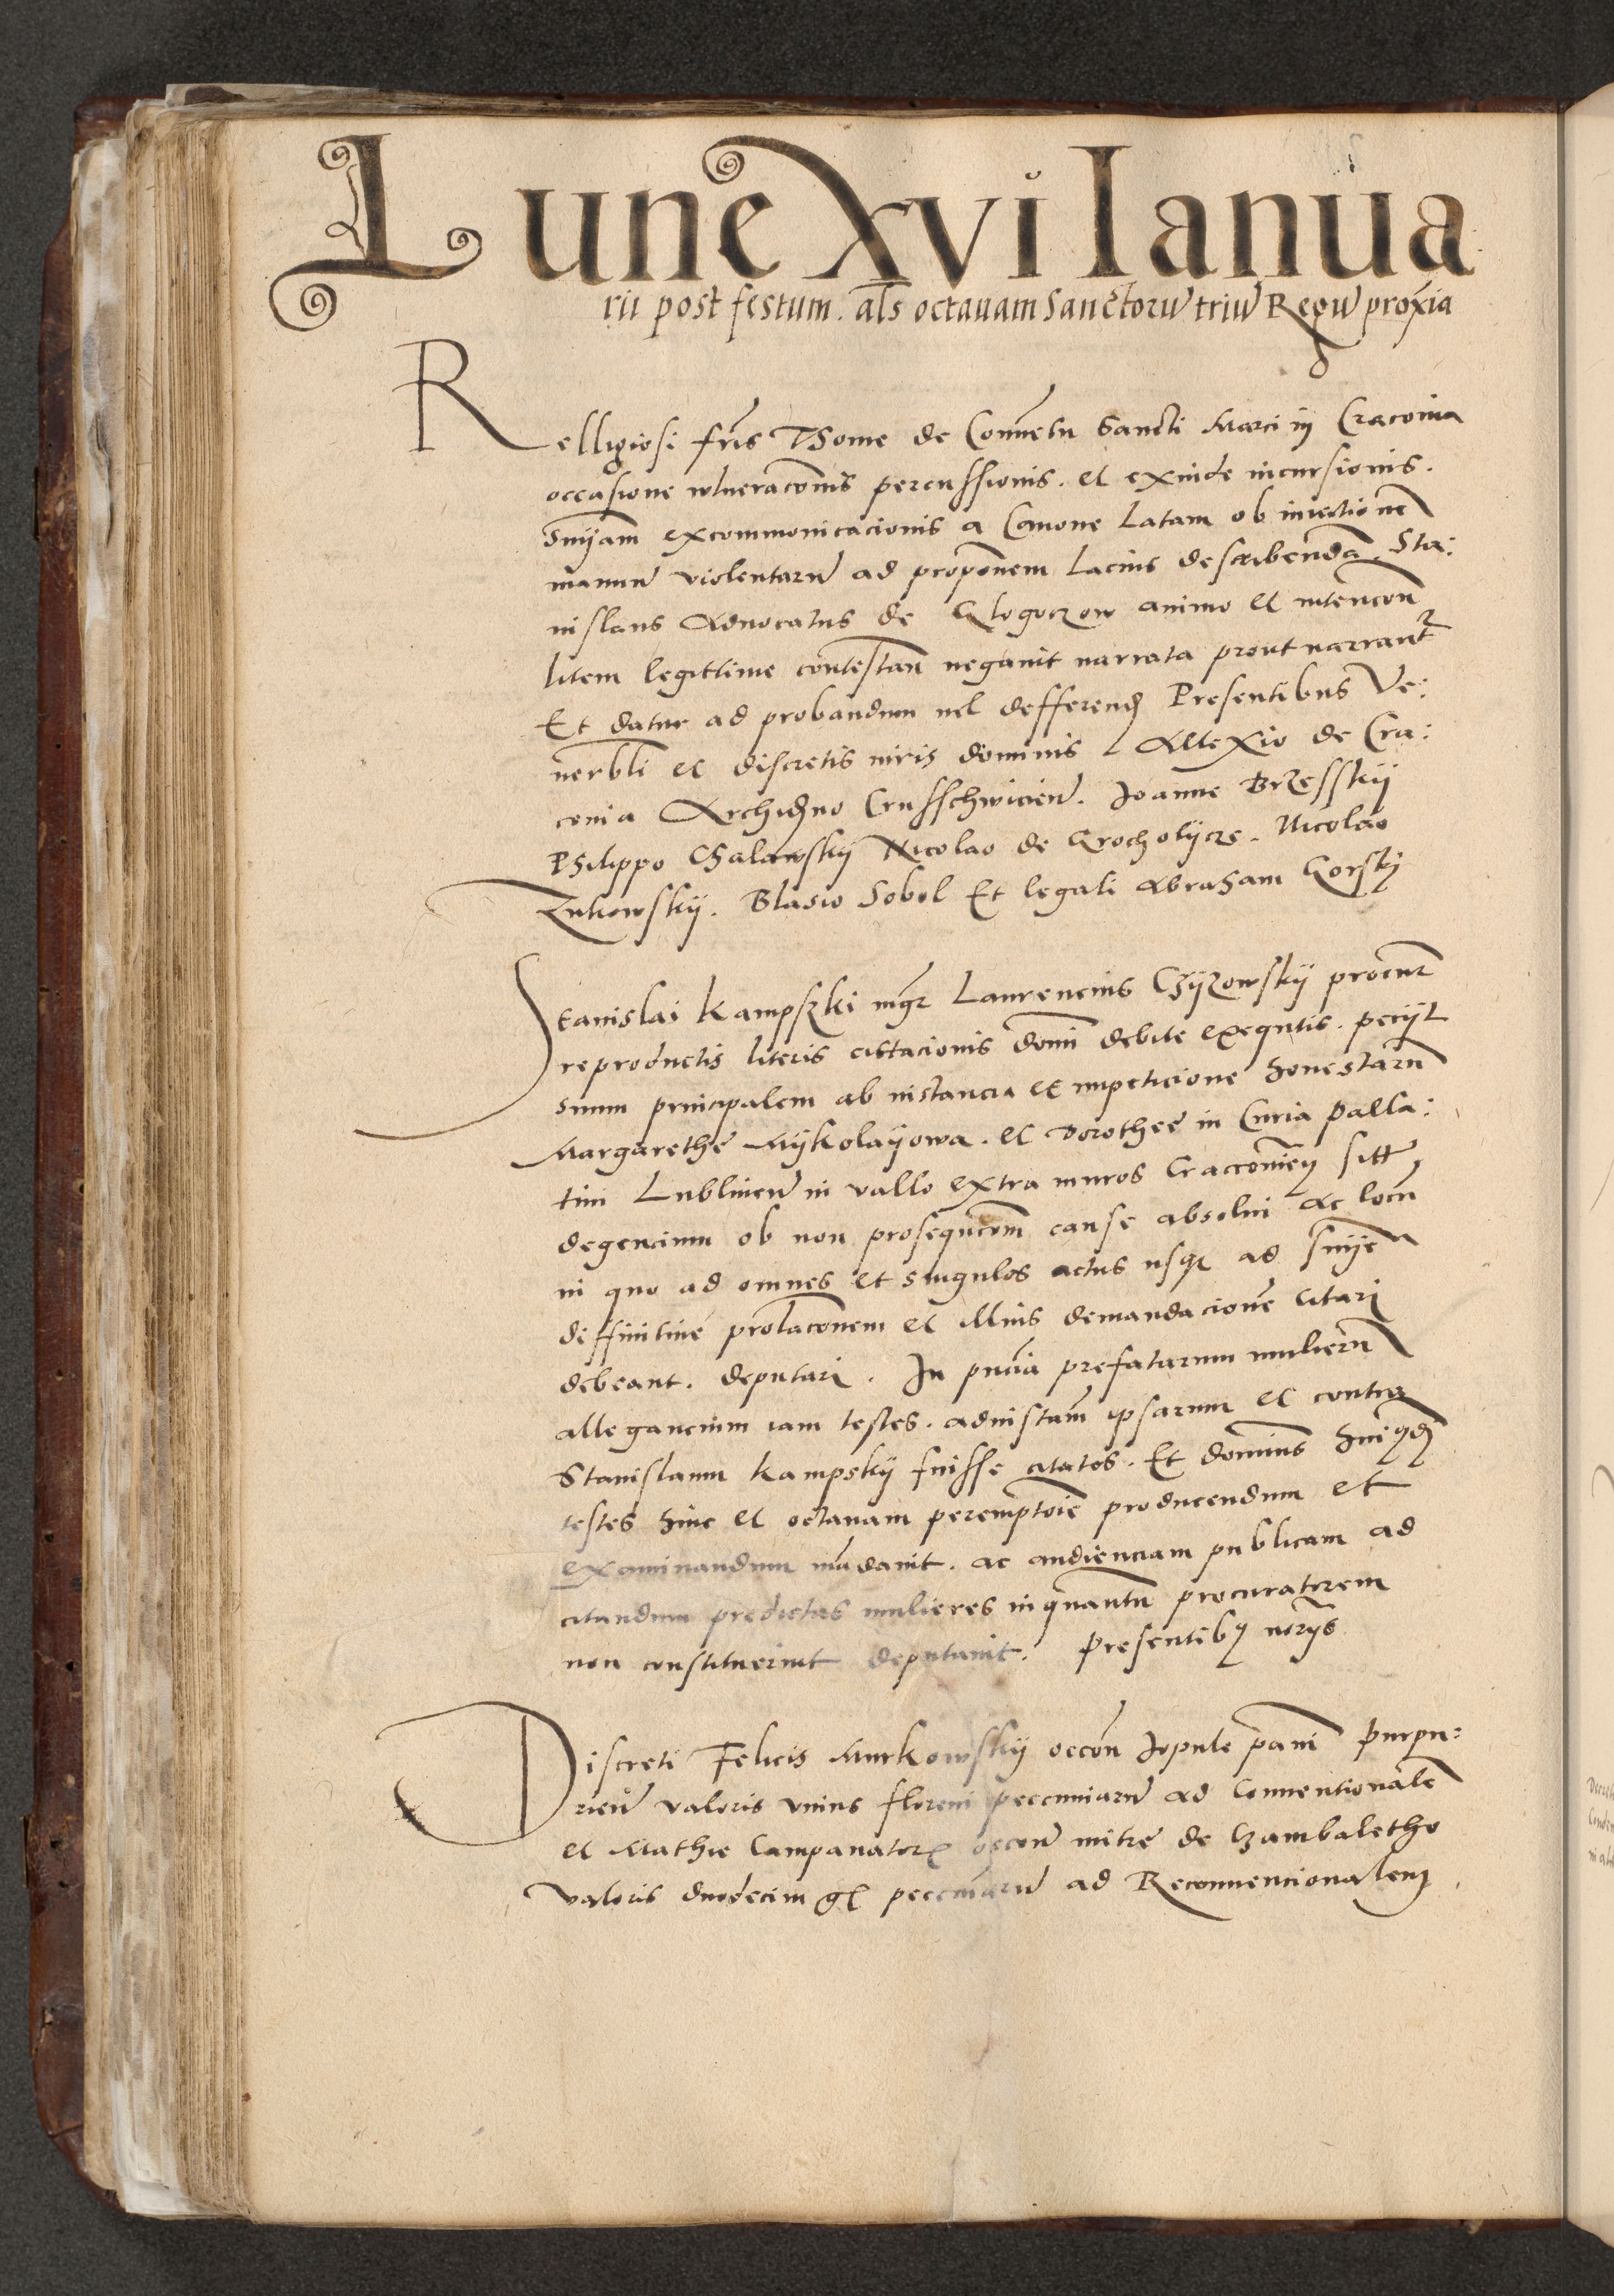 Lune xvi Ianua
rii post festum. als octauam Sanctoru triu Regu proxia
Relligiosi fris Thome de Conuetu Sancti Marci in Craconia
occasione vulneracionis percussionis. et exinde incursionis.
Snyam excommonicacionis a Canone Latam ob iniectione
manuu violentaru ad proponem lacius describenda. Sta:
nislaus Aduocatus de Glogoczow animo et intencon
litem legittime contestan negauit narrata prout narrant
Et datur ad probandum uel defferend Presentibus Ve:
nerbli et discretis uiris dominis Allexio de Cra:
couia Archidno Crusschwicien. Joanne Brzesskÿ
Philippo Chalawskÿ Nicolao de Grocholÿcze. Nicolao
Zukowskÿ. Blasio Sobol Et legali Abraham Gorskj
Stanislai Kampszki mgr Laurencius Chÿzowskÿ procur
reproductis literis citacionis domi debite exequtis. pecijt
suum principalem ab instancia et impeticione honestaru
Margarethe Mÿkolaÿowa. et Dorothee in Curia Palla:
tini Lublinen in vallo extra muros Cracconien sitt
degencium ob non prosequcom cause absolui ac locu
in quo ad omnes et singulos actus usq ad snye
diffinitiue prolaconem et illius demandacione citari
debeant. deputari. In pncia prefatarum mulieru
allegancium iam testes. ad instam ipsarum et contra
Stanislaum Kampskÿ fuisse citatos. Et dominus
testes hinc et octauam peremptoie producendum et
examinandum madauit. ac audienciam publicam ad
citandum predictas mulieres inquantu procuratorem
non constituerint deputauit. Presentiby
Discreti Felicis Murkowskÿ occon Jopule pani purpu:
rien valoris vnius floreni peccuniaru ad Conuentionale
et Mathie Campanator occon mitre de Czambaletho
valoris duodecim gr peccuniaru ad Reconuencionalem